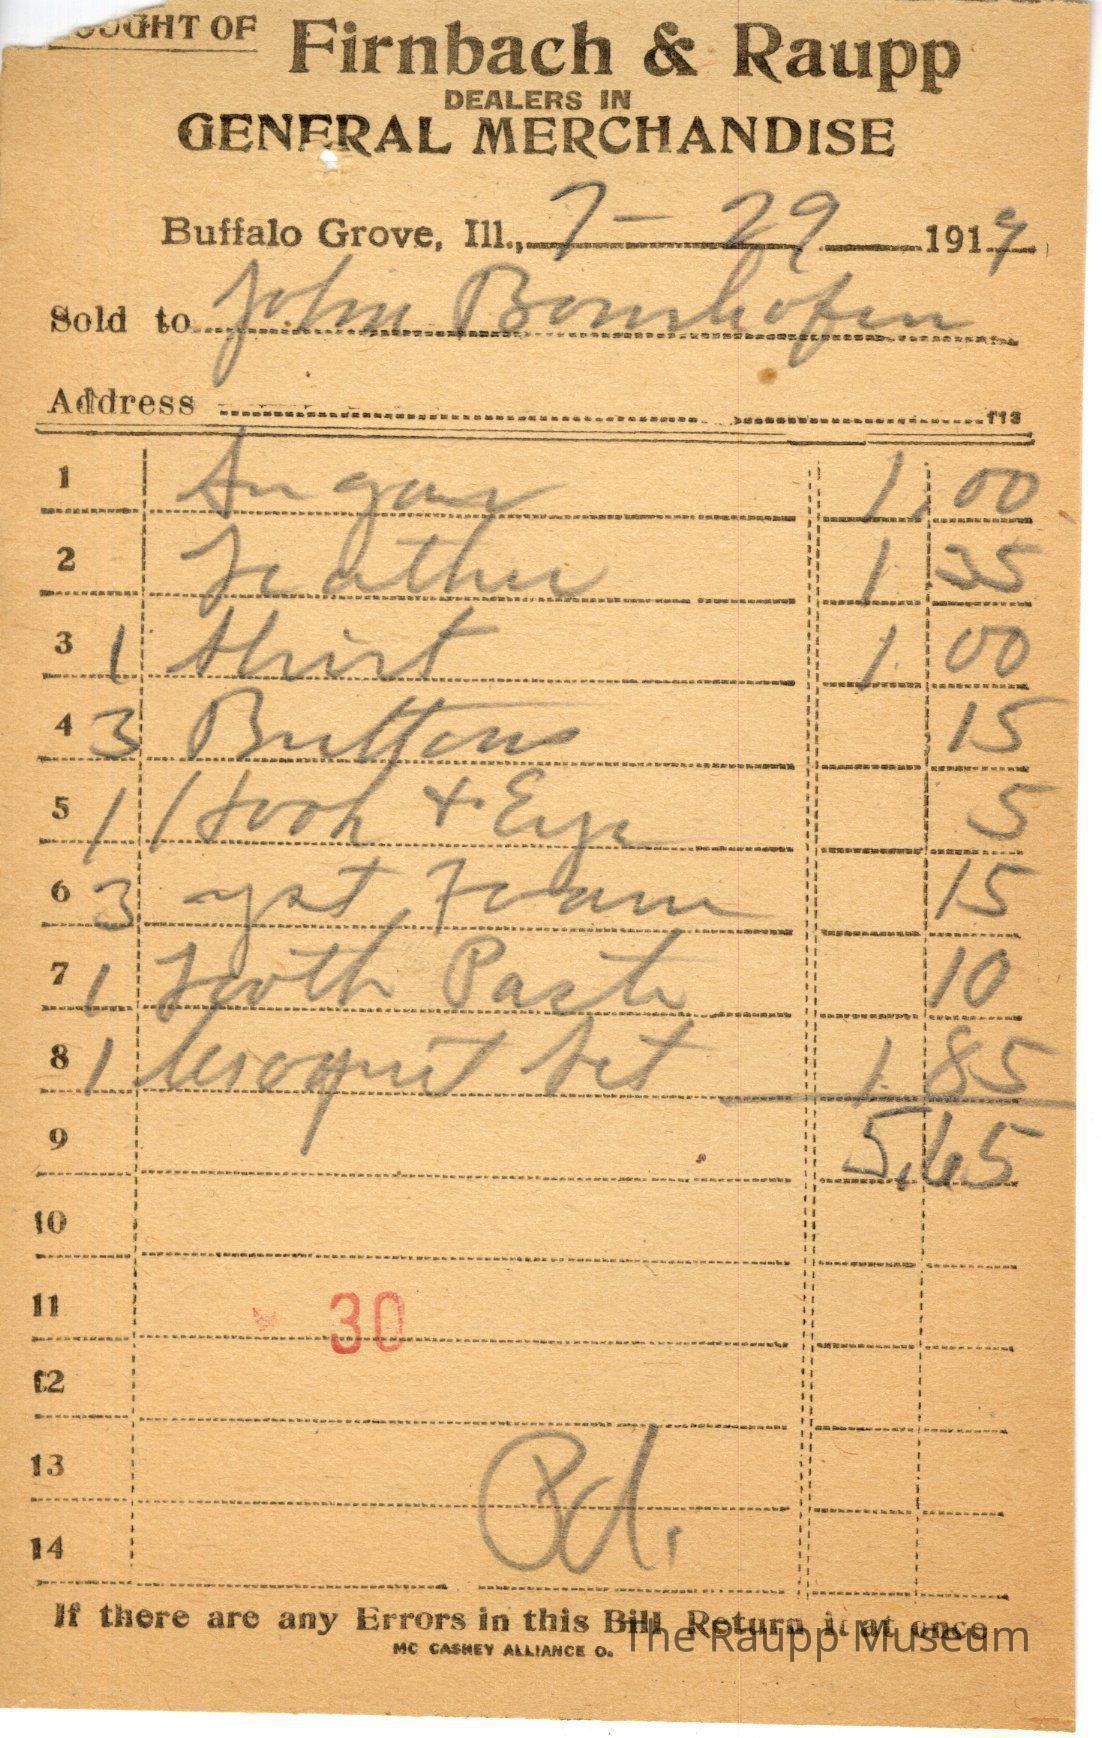 OUGHT OF Firnbach & Raupp
DEALERS IN
GENERAL MERCHANDISE
Buffalo Grove, Ill., 7- 29 1919
Sold to John Bomhofen
Address 113
1 Sugar 1.00
2 Feather 1 35
3 1 Shirt 1.00
4 3 Buttons 15
5 1 Hook + Eye 5
6 3 yst Foam 15
7 1 Tooth Paste 10
8 1 Croquet Set 1.85
9 5.65
10
11 30
12
13 Pd.
14
If there are any Errors in this Bill Return it at once
MC CASKEY ALLIANCE O.
The Raupp Museum